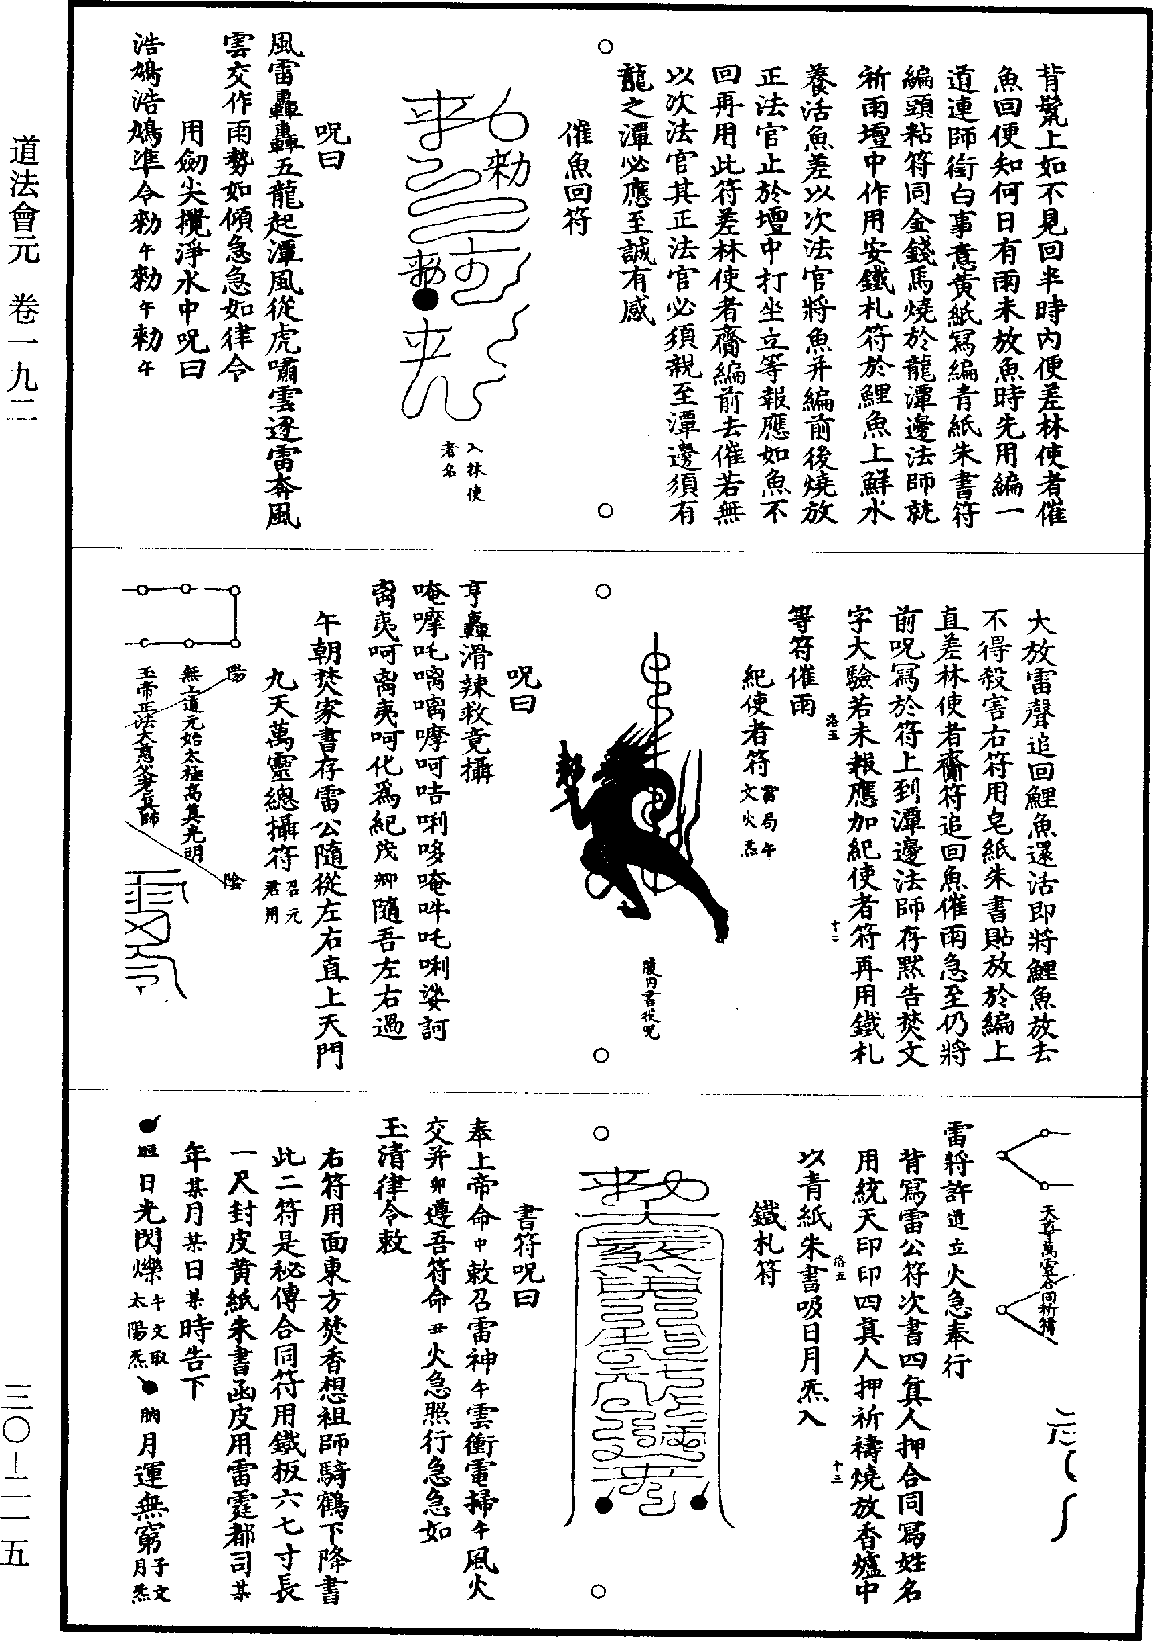 道法會元　卷一九二
三〇—二一五
背鬣上如不見回半時內便差林使者催
魚回便知何日有雨未放魚時先用編一
道連師銜白事意黃紙寫編青紙朱書符
編頭粘符同金錢馬燒於龍潭邊法師就
祈雨壇中作用安鐵札符於鯉魚上鮮水
養活魚差以次法官將魚并編前後燒放
正法官止於壇中打坐立等報應如魚不
回再用此符差林使者齎編前去催若無
以次法官其正法官必須親至潭邊須有
龍之潭必應至誠有感
催魚回符
入林使
者名
呪曰
風雷轟轟五龍起潭風從虎嘯雲逐雷奔風
雲交作雨勢如傾急急如律令
用劒尖攪淨水中呪曰
浩鴆浩鴆準令勑午勑午勑午
大放雷聲追回鯉魚還活即將鯉魚放去
不得殺害右符用皂紙朱書貼放於編上
直差林使者齎符追回魚催雨急至仍將
前呪寫於符上到潭邊法師存默告焚文
字大驗若未報應加紀使者符再用鐵札
等符催雨
紀使者符雷局午
文火炁
腹內書後呪
呪曰
亨轟滑辣救竟攝
唵嚤吒嚆嚆嚤呵咭唎哆唵吽吒唎娑訶
离夷呵离夷呵化爲紀茂卿隨吾左右過
午朝焚家書存雷公隨從左右直上天門
九天萬靈總攝符召元
君用
陽
無上道元始太極高真光明
玉帝正法大慈父老真師
陰
天尊萬靈合同祈禱
雷將許道立火急奉行
背寫雷公符次書四真人押合同寫姓名
用統天印印四真人押祈禱燒放香爐中
以青紙朱書吸日月炁入
鐵札符
書符呪曰
奉上帝命中敕召雷神午雲衝電掃午風火
交并卯遵吾符命丑火急照行急急如
玉清律令敕
右符用面東方焚香想祖師騎鶴下降書
此二符是祕傳合同符用鐵板六七寸長
一尺封皮黃紙朱書函皮用雷霆都司某
年某月某日某時告下
日光閃爍午文取
太陽炁
月運無窮子文
月炁